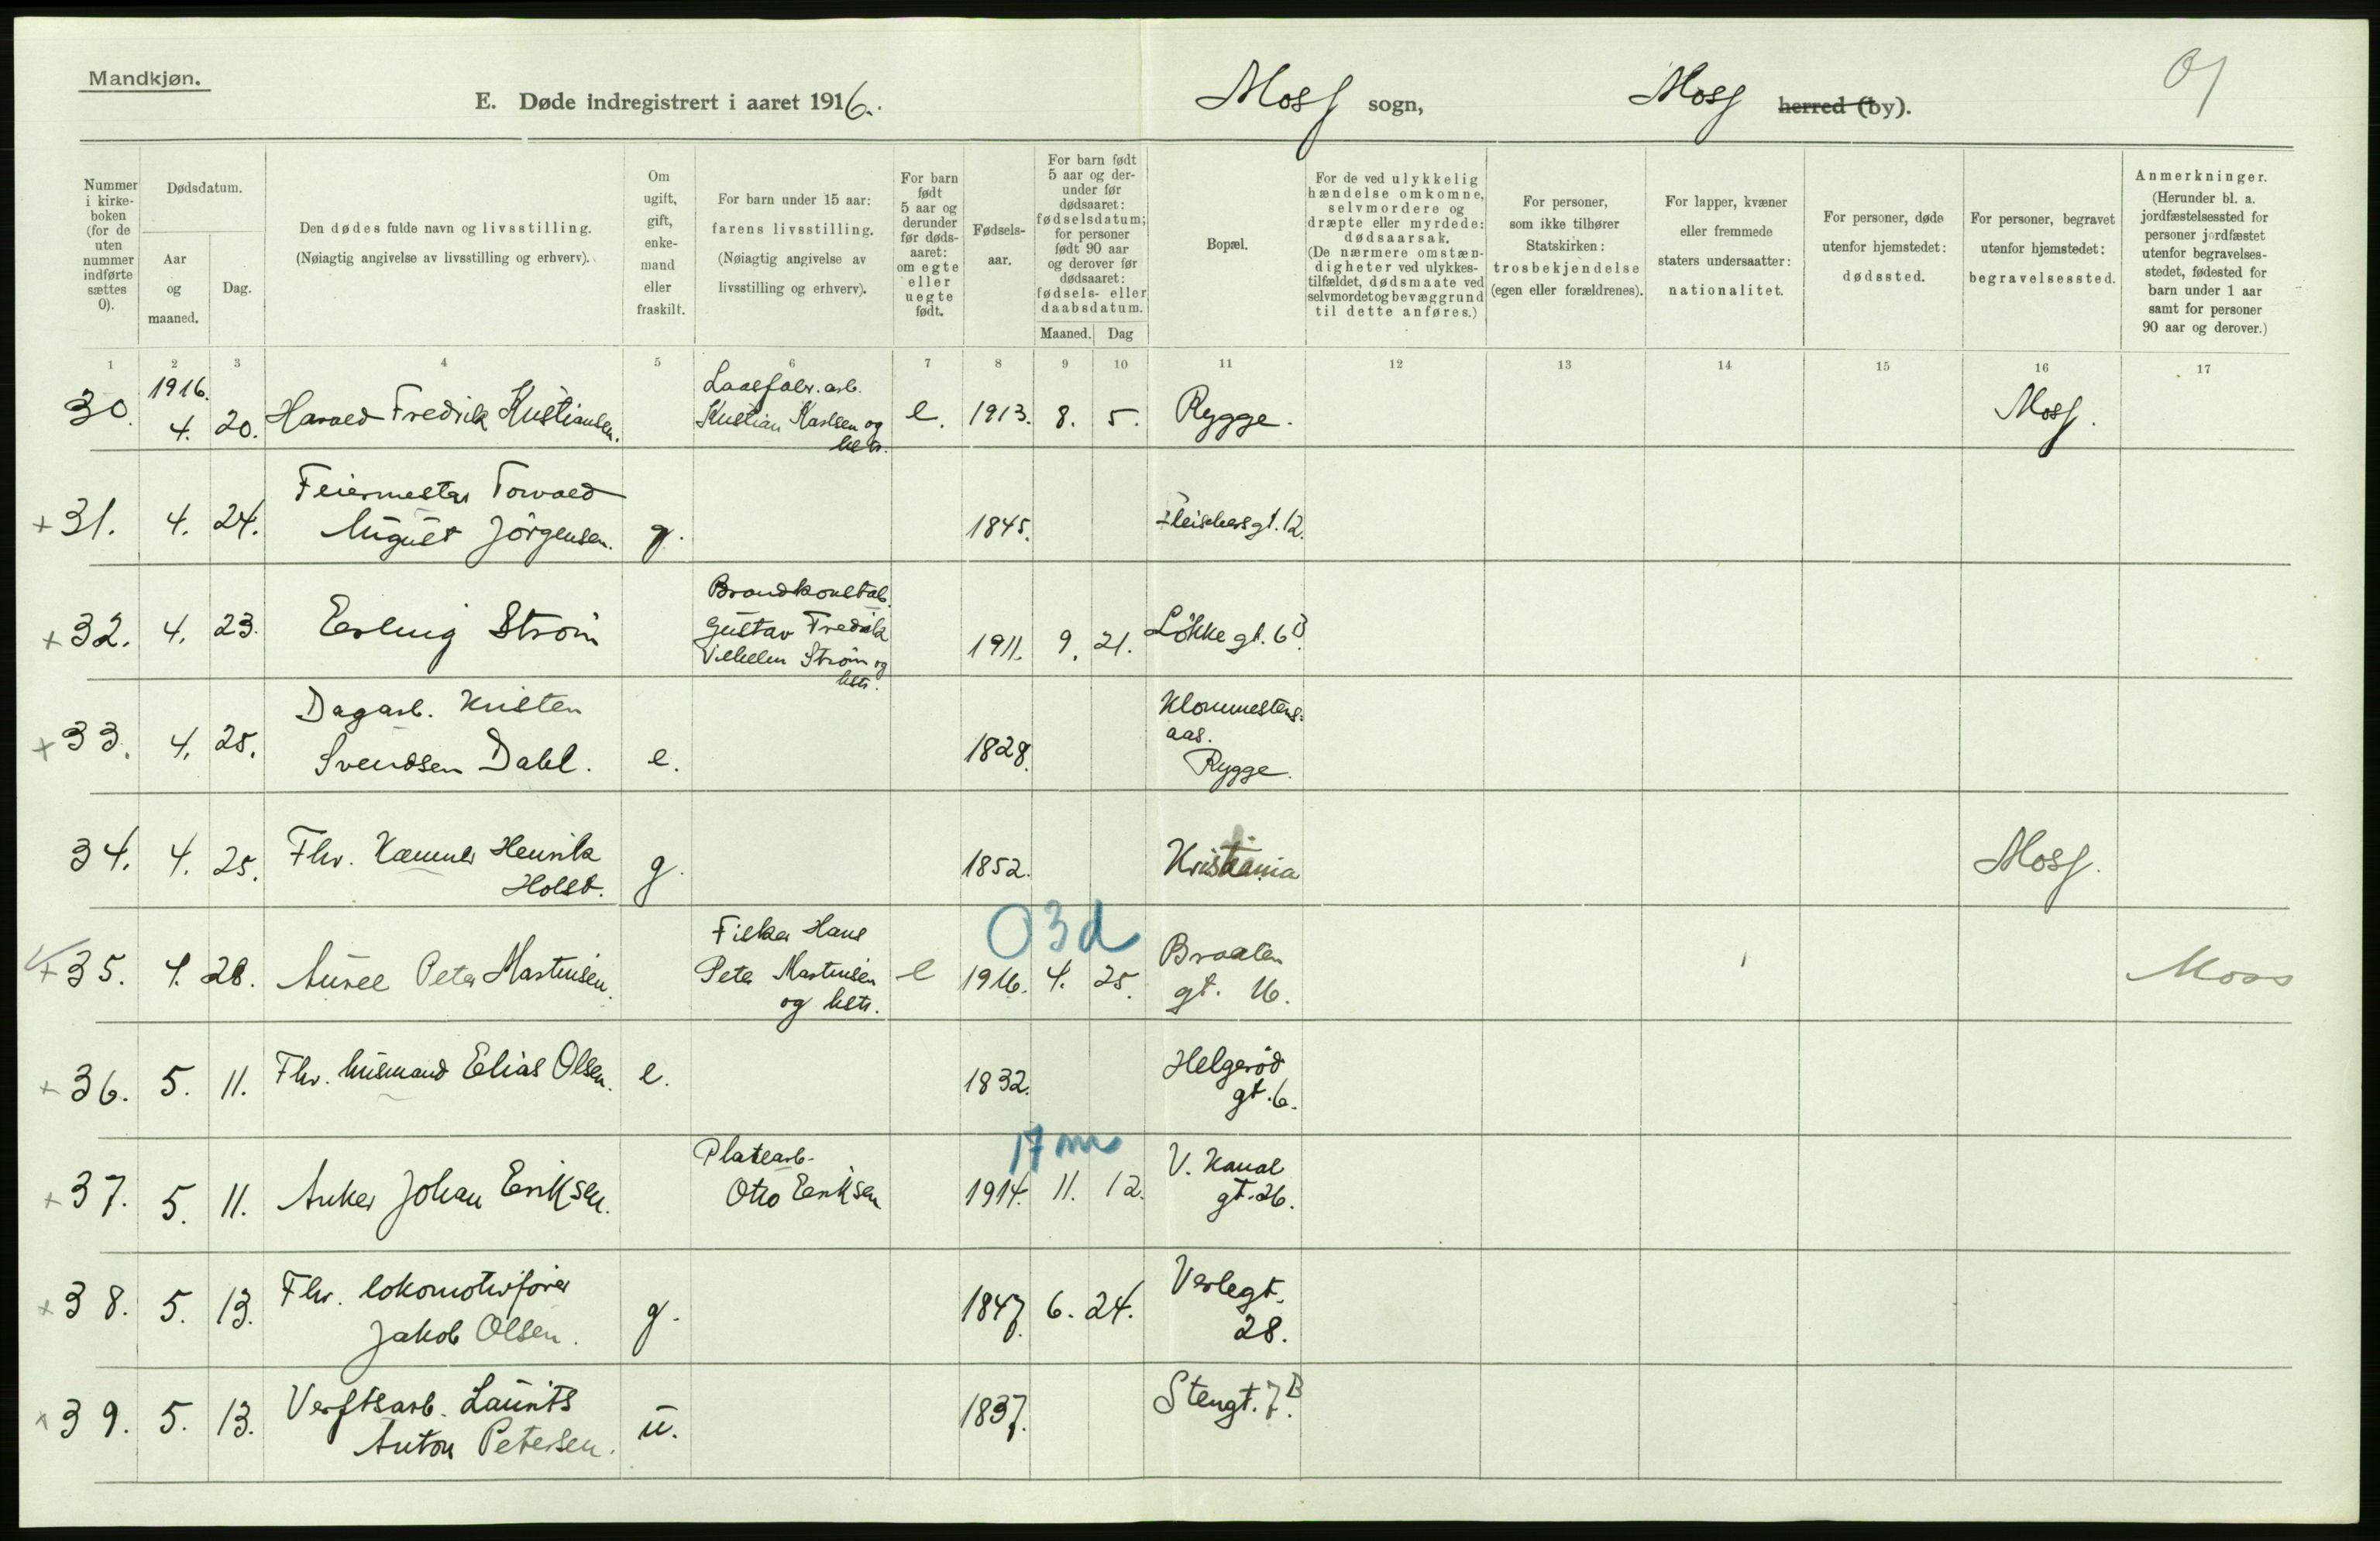 Mandkjøn.
E. Døde indregistrert i aaret 1916.
Moss sogn,
Moss herred (by).
Nummer i kirke-boken (for de uten nummer indførte sættes 0).
Dødsdatum.
Aar og maaned.
Dag.
Den dødes fulde navn og livsstilling.
(Nøiagtig angivelse av livsstilling og erhverv).
Om ugift, gift, enke-mand eller fraskilt.
For barn under 15 aar:
farens livsstilling.
(Nøiagtig angivelse av
livsstilling og erhverv).
For barn født 5 aar og derunder før døds-aaret: om egte eller uegte født.
Fødsels-aar.
For barn født 5 aar og der-under før dødsaaret: fødselsdatum; for personer født 90 aar og derover før dødsaaret: fødsels- eller daabsdatum.
Maaned. Dag
Bopæl.
For de ved ulykkelig hændelse omkomne, selvmordere og dræpte eller myrdede: dødsaarsak.
(De nærmere omstæn-digheter ved ulykkes-tilfældet, dødsmaate ved selvmordet og bevæggrund til dette anføres.)
For personer, som ikke tilhører Statskirken: trosbekjendelse (egen eller forældrenes).
For lapper, kvæner eller fremmede staters undersaatter: nationalitet.
For personer, døde utenfor hjemstedet: dødssted.
For personer, begravet utenfor hjemstedet: begravelsessted.
Anmerkninger.
(Herunder bl. a. jordfæstelsessted for personer jordfæstet utenfor begravelses-stedet, fødested for barn under 1 aar samt for personer 90 aar og derover.)
1 2 3 4 5 6 7 8 9 10 11 12 13 14 15 16 17
1916.
30. 4. 20. Harald Fredrik Kristiansen. Laasfabr. arb. Kristian Karlsen og hstr. e. 1913. 8. 5. Rygge. Moss.
+ 31. 4. 24. Feiermester Torvald
August Jörgensen. g. 1845. Fleischersgt. 12.
+ 32. 4. 23. Erling Ström Brandkonstab.
Gustav Fredrik
Vilhelm Ström og
hstr. 1911. 9. 21. Lökkegt. 6B.
+ 33. 4. 25. Dagarb. Kristen
Svendsen Dahl. e. 1828. Klommestens
aas.
Rygge.
34. 4. 25. Fhv. Kæmner Henrik
Holst. g. 1852. Kristiania Moss.
03d
+ 35. 4. 28. Aurel Peter Martinsen. Fisker Hans
Peter Martinsen
og hstr. e 1916. 4. 25. Braaten
gt. 16. Moss
+ 36. 5. 11. Fhv. husmand Elias Olsen. e. 1832. Helgerød
gt. 6.
17 m
+ 37. 5. 11. Anker Johan Eriksen. Platearb.
Otto Eriksen 1914. 11. 12. V. Kanal
gt. 26.
+ 38. 5. 13. Fhv. lokomotivfører
Jakob Olsen. g. 1847. 6. 24. Verlegt.
28.
+ 39. 5. 13. Verftsarb. Laurits
Anton Petersen. u. 1837. Stengt. 7B.